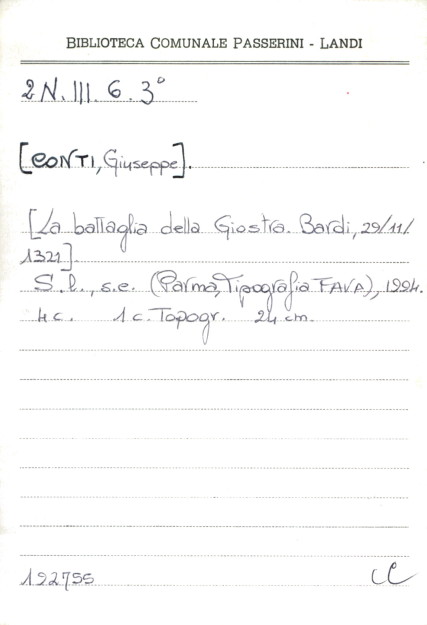 BIBLIOTECA COMUNALE PASSERINI - LANDI
2 N. III. 6. 3°
[CONTI, Giuseppe].
[La battaglia della Giostra. Bardi, 29/11/
1321].
S.l., s.e. (Parma, Tipografia FAVA), 1994.
4 c. 1 c. Topogr. 24 cm.
192755